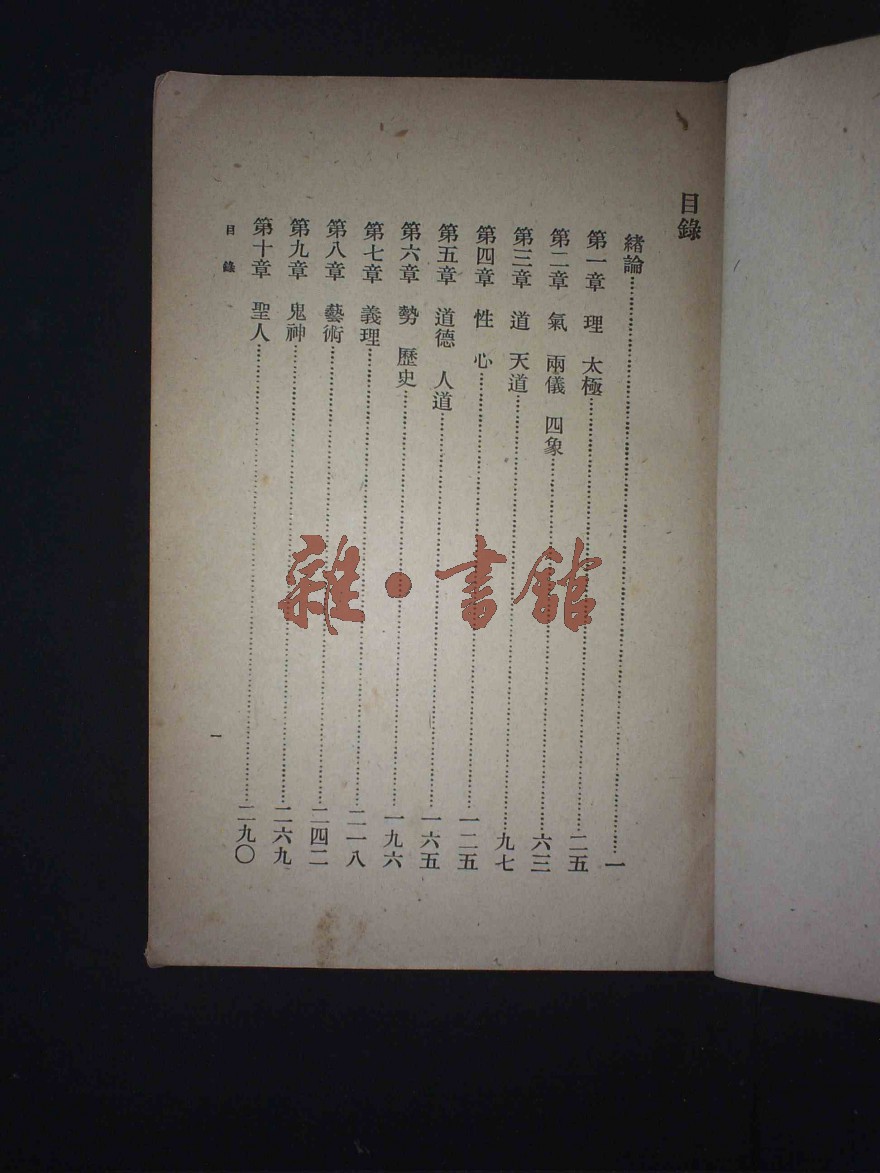 目錄
緒論……一
第一章 理 太極……二五
第二章 氣 兩儀 四象……六三
第三章 道 天道……九七
第四章 性 心……一二五
第五章 道德 人道……一六五
第六章 勢 歷史……一九六
第七章 義理……二一八
第八章 藝術……二四二
第九章 鬼神……二六九
第十章 聖人……二九〇
目錄
一
雜·書館